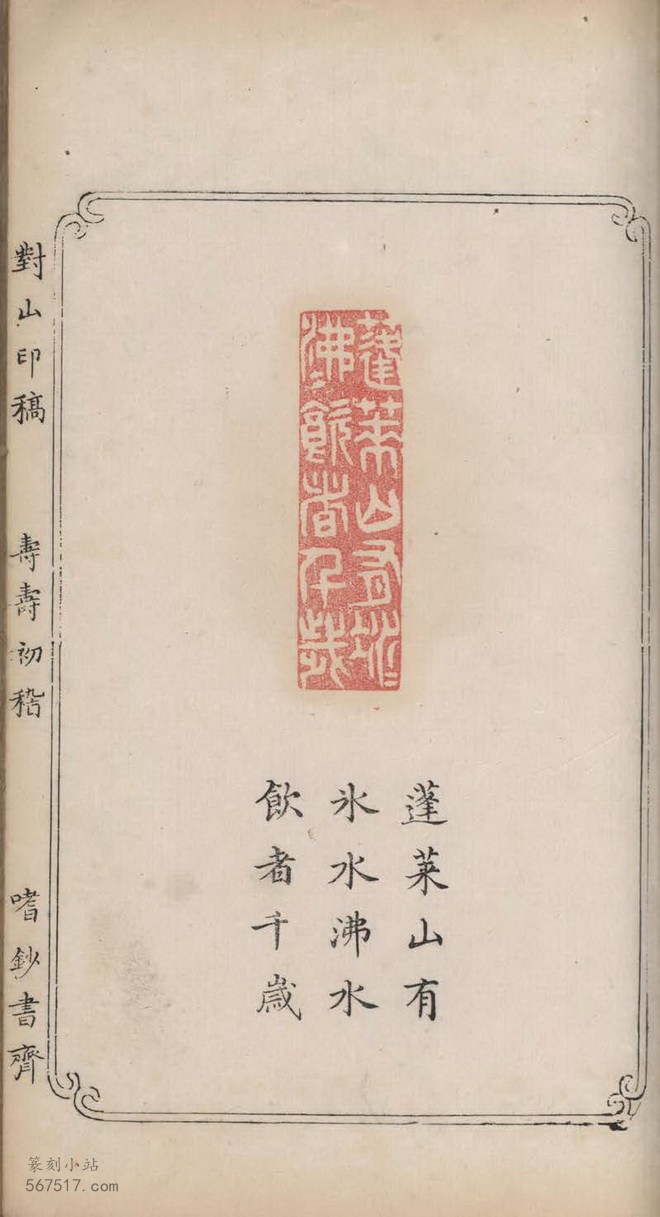 蓬萊山有冰〻
沸〻飲者千歲
蓬萊山有
氷水沸水
飲者千歲
對山印稿 壽壽初稽 嗜鈔書齊
篆刻小站
567517.com